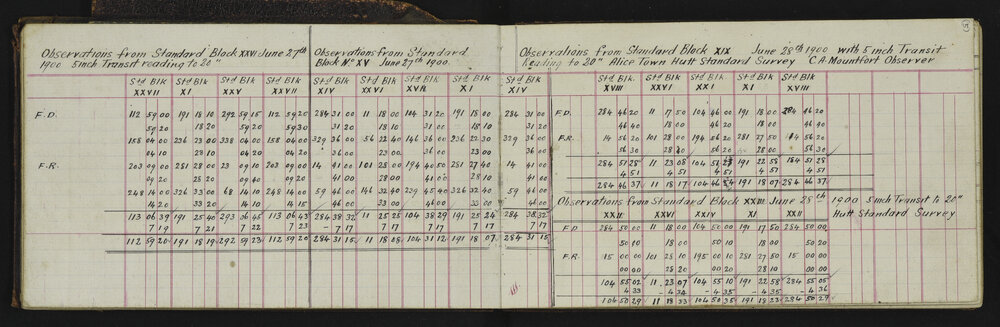 Observations from Standard Block XXVI June 27th
1900 5 inch Transit reading to 20"
Std Blk Std Blk Std Blk Std Blk
XXVII XI XXV XXVII
F.D. 112 59 00 191 18 10 292 59 15 112 59 20
59 20 18 20 59 20 59 20
158 04 00 236 23 00 338 04 00 158 04 00
04 10 23 10 04 20 04 20
F.R. 203 09 00 281 28 00 23 09 10 203 09 00
09 20 28 20 09 40 09 20
248 14 00 326 33 00 68 14 10 248 14 00
14 20 33 20 14 10 14 15
113 06 39 191 25 40 293 36 45 113 06 43
7 19 7 21 7 22 7 23
112 59 20 191 18 19 292 59 23 112 59 20
Observations from Standard
Block No XV June 27th 1900
Std Blk Std Blk Std Blk Std Blk Std Blk
XIV XXVI XVI XI XIV
284 31 00 11 18 00 104 31 20 191 18 00 284 31 00
31 20 18 10 31 00 18 10 31 20
329 36 00 56 22 40 146 36 00 236 22 30 329 36 00
36 00 23 00 36 00 23 00 36 00
14 41 00 101 28 00 194 40 50 281 27 40 14 41 00
41 00 28 00 41 00 28 10 41 00
59 46 00 146 32 40 239 45 40 326 32 40 59 46 00
46 00 33 00 46 00 33 00 46 00
284 38 32 11 25 25 104 38 29 191 25 24 284 38 32
7 17 7 17 7 17 7 17 7 17
284 31 15 11 18 08 104 31 12 191 18 07 284 31 15
Observations from Standard Block XIX June 28th 1900 with 5 inch Transit
Reading to 20" Alice Town Hutt Standard Survey C.A. Mountfort Observer
Std Blk Std Blk Std Blk Std Blk Std Blk
XVIII XXVI XX XI XVIII
F.D. 284 46 20 11 17 50 104 46 00 191 18 00 284 46 20
46 40 18 00 46 20 18 00 46 40
F.R. 14 56 20 101 28 00 194 56 20 281 27 50 14 56 20
56 30 28 20 56 20 28 00 56 30
284 51 28 11 23 08 104 51 191 22 58 284 51 28
4 51 4 51 4 51 4 51 4 51
284 46 37 11 18 17 104 46 191 18 07 284 46 37
Observations from Standard Block XXIII June 28th 1900 5 inch Transit to 20"
Hutt Standard Survey
XXII XXVI XXIV XI XXII
F.D 284 50 00 11 18 00 104 50 00 191 17 50 284 50 00
50 10 18 00 50 10 18 00 50 10
F.R. 15 00 00 101 28 10 195 00 10 281 27 50 15 00 00
00 00 28 20 00 20 28 10 00 00
104 55 02 11 23 07 104 55 10 191 22 58 284 55 05
4 33 - 4 34 - 4 35 - 4 35 - 4 36
104 50 29 11 18 33 104 50 35 191 18 23 284 50 29